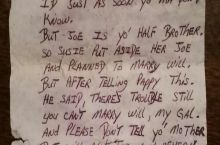 I'D JUST AS SOON YO NOT
KNOW.
BUT JOE IS YO HALF BROTHER.
SO SUSIE PUT ASIDE HER JOE
AND PLANNED TO MARRY WILL,
BUT AFTER TELLING PAPPY THIS,
HE SAID, THERE'S TROUBLE STILL
YOU CAN'T MARRY WILL, MY GAL.
AND PLEASE DON'T TELL YO' MOTHER